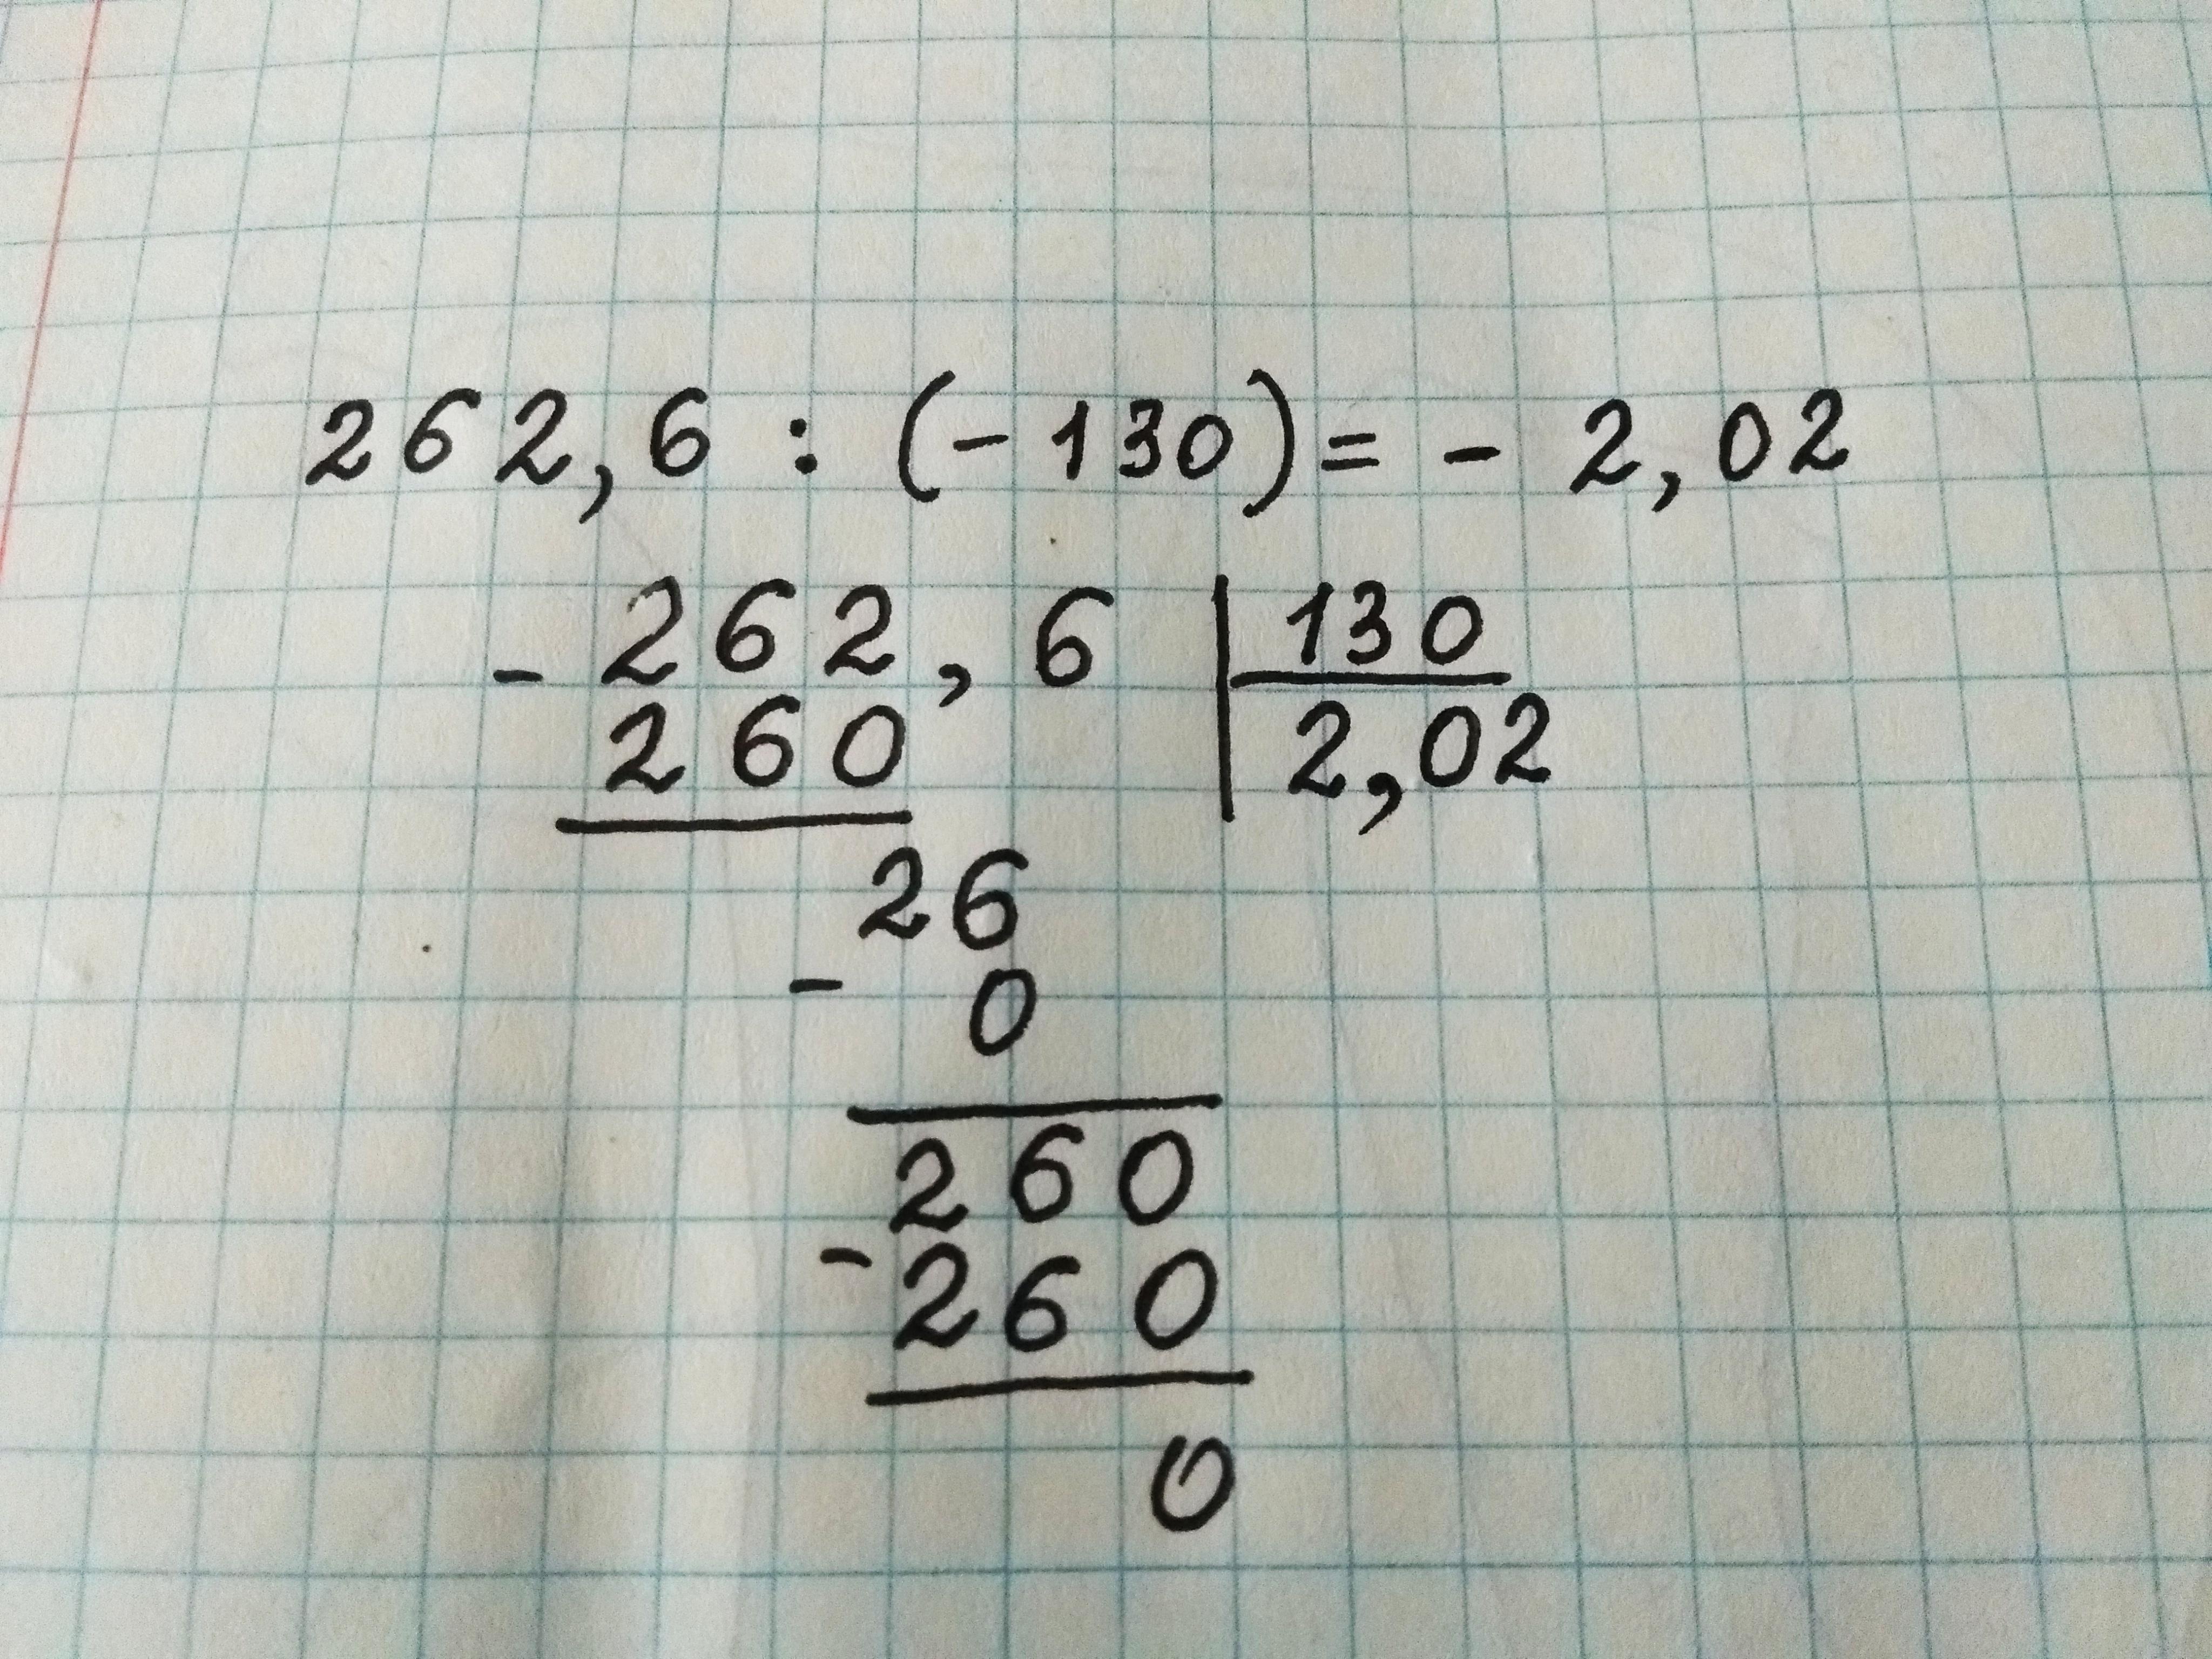 262,6 : (-130) = - 2,02
- 262,6 | 130
260 | 2,02
26
- 0
260
- 260
0